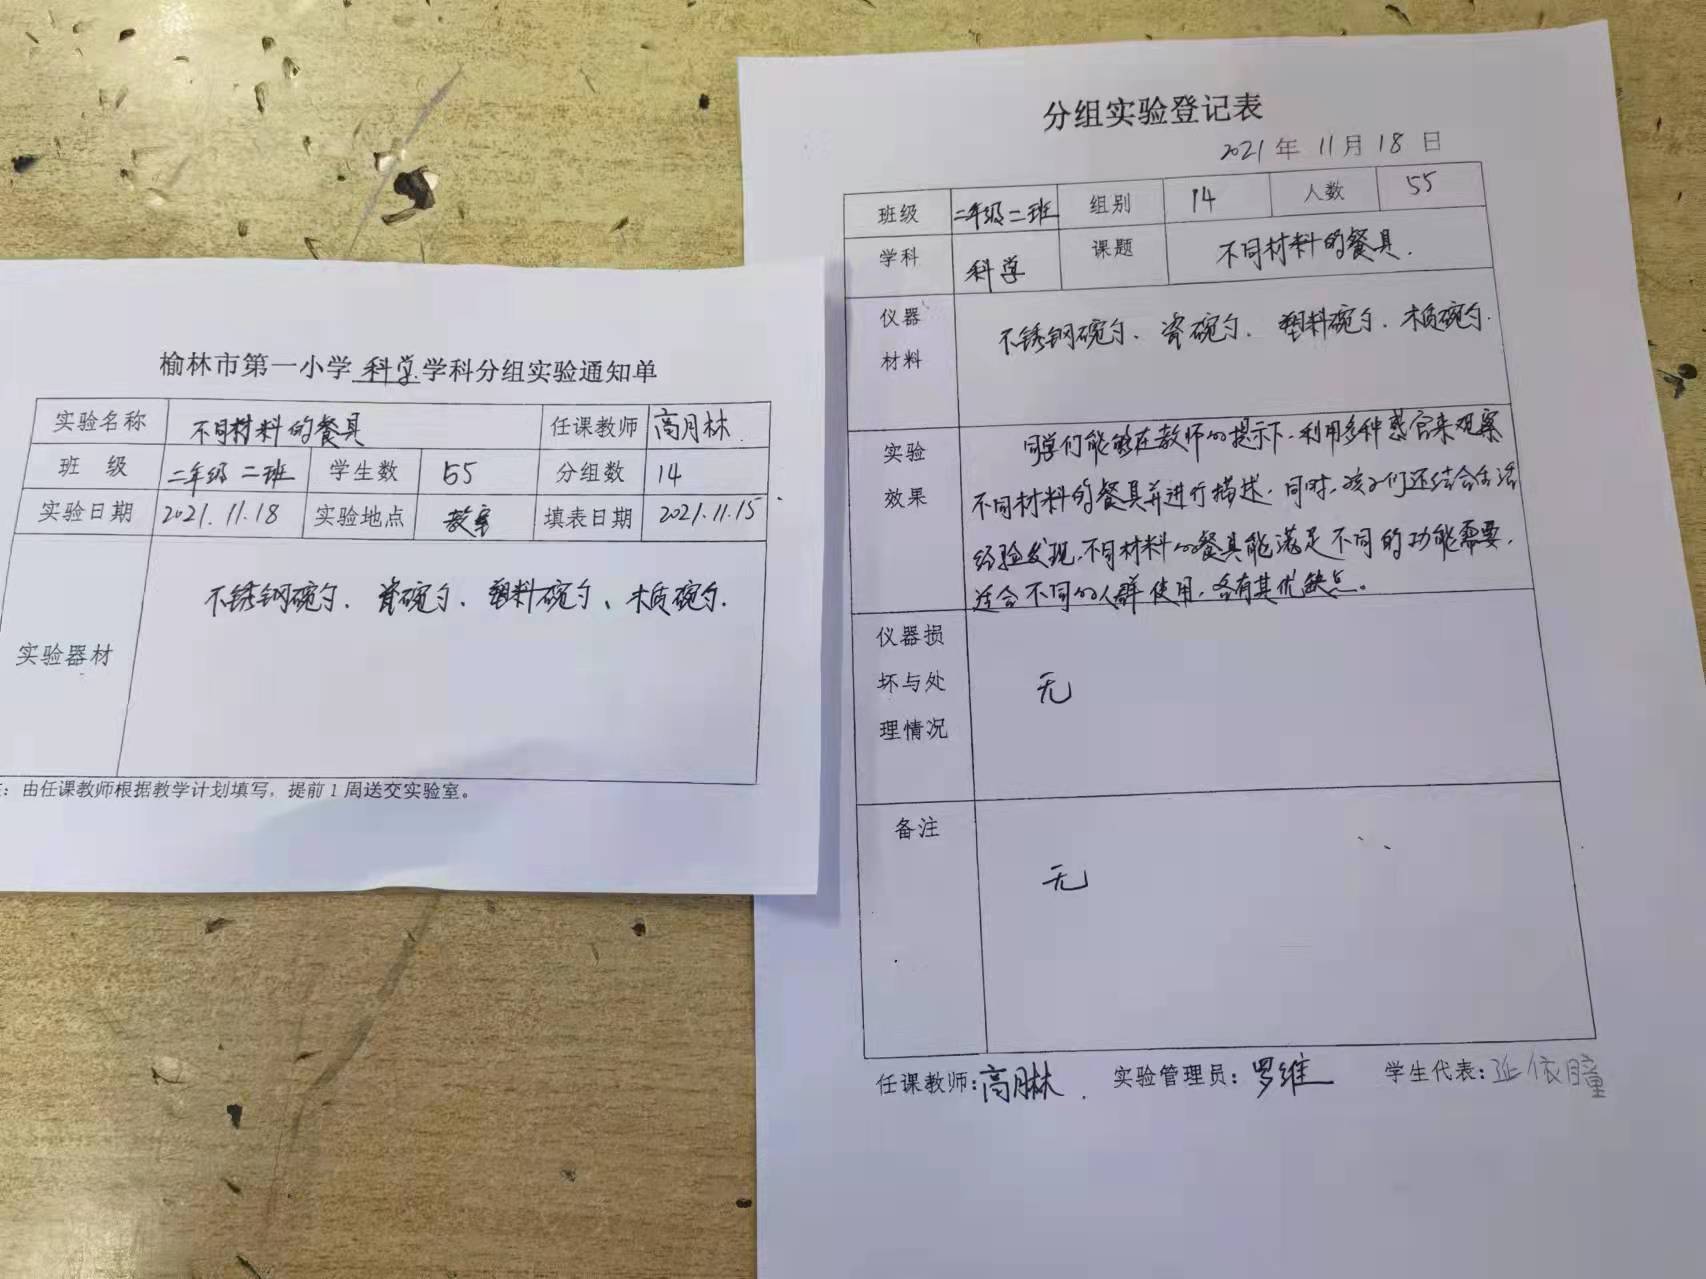 榆林市第一小学 科学 学科分组实验通知单
实验名称 不同材料的餐具 任课教师 高月林
班 级 二年级二班 学生数 55 分组数 14
实验日期 2021.11.18 实验地点 教室 填表日期 2021.11.15
实验器材 不锈钢碗勺、瓷碗勺、塑料碗勺、木质碗勺.
：由任课教师根据教学计划填写，提前1周送交实验室。
分组实验登记表
2021年11月18日
班级 二年级二班 组别 14 人数 55
学科 科学 课题 不同材料的餐具.
仪器
材料
不锈钢碗勺、瓷碗勺、塑料碗勺、木质碗勺.
实验
效果
同学们能够在教师的提示下,利用多种感官来观察
不同材料的餐具并进行描述,同时,孩子们还结合生活
经验发现,不同材料的餐具能满足不同的功能需要,
适合不同的人群使用,各有其优缺点。
仪器损
坏与处
理情况
无
备注
无
任课教师：高月林. 实验管理员：罗维 学生代表：延依瞳